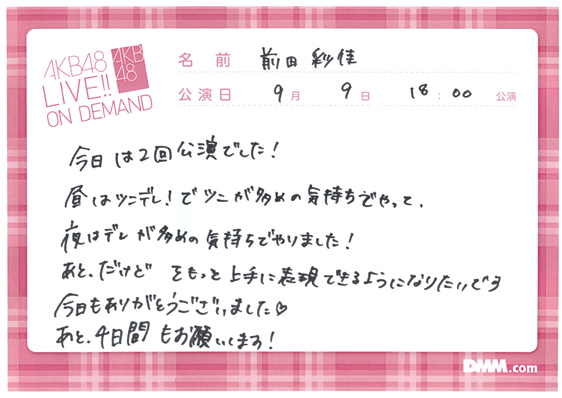 AKB48
LIVE!!
ON DEMAND
AKB
48
名前 前田 彩佳
公演日 9月 9日 18:00 公演
今日は2回公演でした!
昼はツンデレ!でツンが多めの気持ちでやって、
夜はデレが多めの気持ちでやりました!
あと、だけど をもっと上手に表現できるようになりたいです
今日もありがとうございました♡
あと、4日間もお願いします!
DMM.com